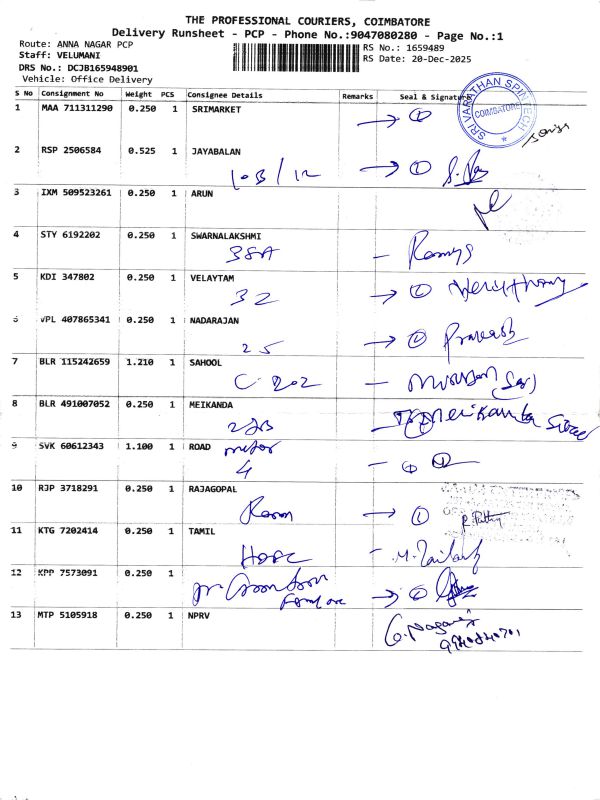 THE PROFESSIONAL COURIERS, COIMBATORE
Delivery Runsheet - PCP - Phone No.:9047080280 - Page No.:1
Route: ANNA NAGAR PCP
RS No.: 1659489
Staff: VELUMANI
RS Date: 20-Dec-2025
DRS No.: DCJB165948901
Vehicle: Office Delivery
S No Consignment No Weight PCS Consignee Details Remarks Seal & Signature
SRI VARATHAN SPINTECH
COIMBATORE
1 MAA 711311290 0.250 1 SRIMARKET
→ ①
2 RSP 2506584 0.525 1 JAYABALAN
10B/12 → ①
3 IXM 509523261 0.250 1 ARUN
4 STY 6192202 0.250 1 SWARNALAKSHMI
38A -
5 KDI 347802 0.250 1 VELAYTAM
32 → ①
6 VPL 407865341 0.250 1 NADARAJAN
25 → ① Prakash
7 BLR 115242659 1.210 1 SAHOOL
C 202 - Murugan
8 BLR 491007052 0.250 1 MEIKANDA
Meikanda
9 SVK 60612343 1.100 1 ROAD
4 - ① ①
10 RJP 3718291 0.250 1 RAJAGOPAL
→ ①
11 KTG 7202414 0.250 1 TAMIL
12 KPP 7573091 0.250 1
→ ①
13 MTP 5105918 0.250 1 NPRV